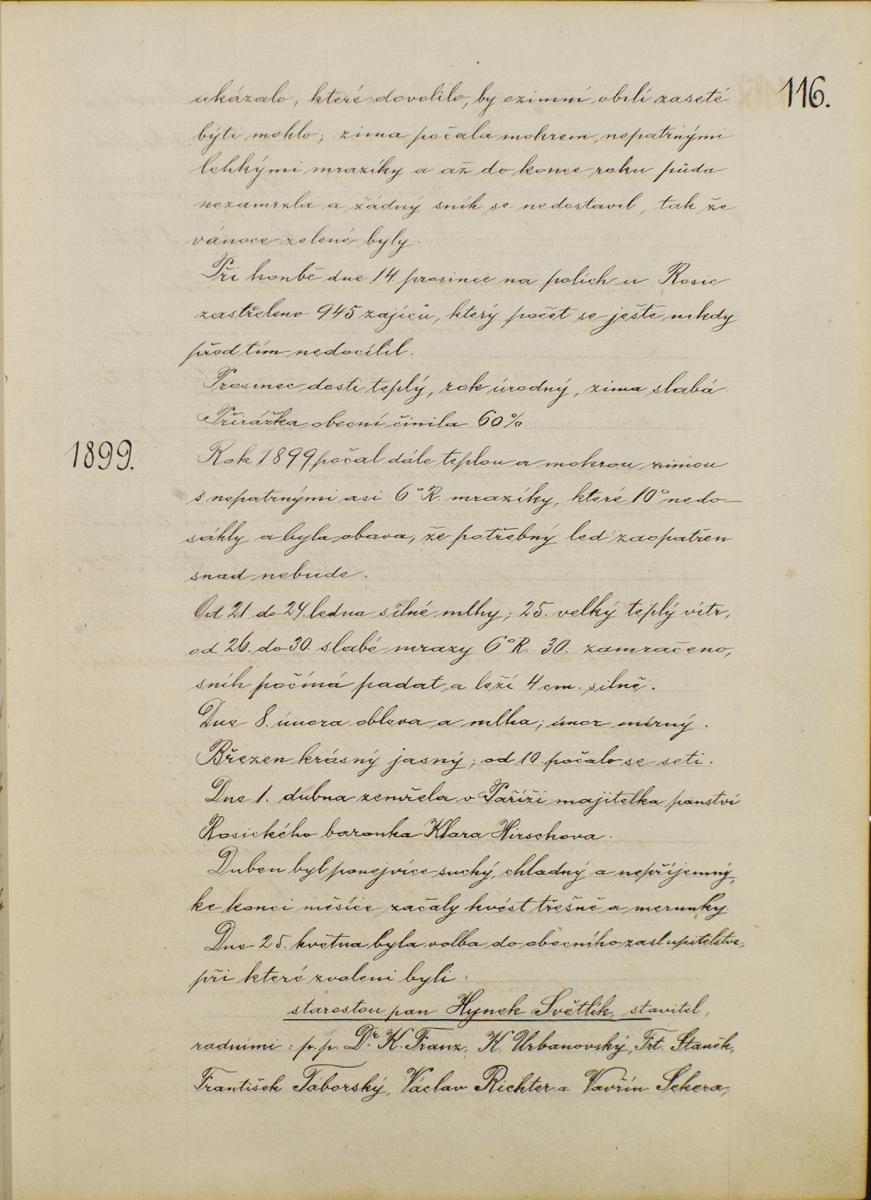 116.
ukázalo, které dovolilo, by ozimní obilí zaseté
býti mohlo; zima počala mokrem, nepatrnými
lehkými mrazíky a až do konce roku půda
nezamrzla a žádný sníh se nedostavil, tak že
vánoce zelené byly.
Při honbě dne 14. prosince na polích u Rosic
zastřeleno 945 zajíců, který počet se ještě nikdy
před tím nedocílil.
Prosinec dosti teplý, rok úrodný, zima slabá
Přirážka obecní činila 60%
1899.
Rok 1899 počal dále teplou a mokrou zimou
s nepatrnými asi 6° R. mrazíky, které 10° nedo-
sáhly a byla obava, že potřebný led zaopatřen
snad nebude.
Od 21. do 24. ledna silné mlhy; 25. velký teplý vítr,
od 26. do 30. slabé mrazy 6° R. 30. zamračeno,
sníh počíná padat a leží 4 cm. silně.
Dne 8. února obleva a mlha; únor mírný.
Březen krásný jasný; od 10. počalo se seti.
Dne 1. dubna zemřela v Paříži majitelka panství
Rosického baronka Klara Hirschova.
Duben byl ponejvíce suchý, chladný a nepříjemný,
ke konci měsíce začaly kvést třešně a merunky
Dne 25. května byla volba do obecního zastupitelstva,
při které zvoleni byli:
starostou pan Hynek Světlík, stavitel,
radními: p.p. Dr. K. Franz, K. Urbanovský, Frt. Staněk,
František Táborský, Václav Richter a Vavřín Sekera,